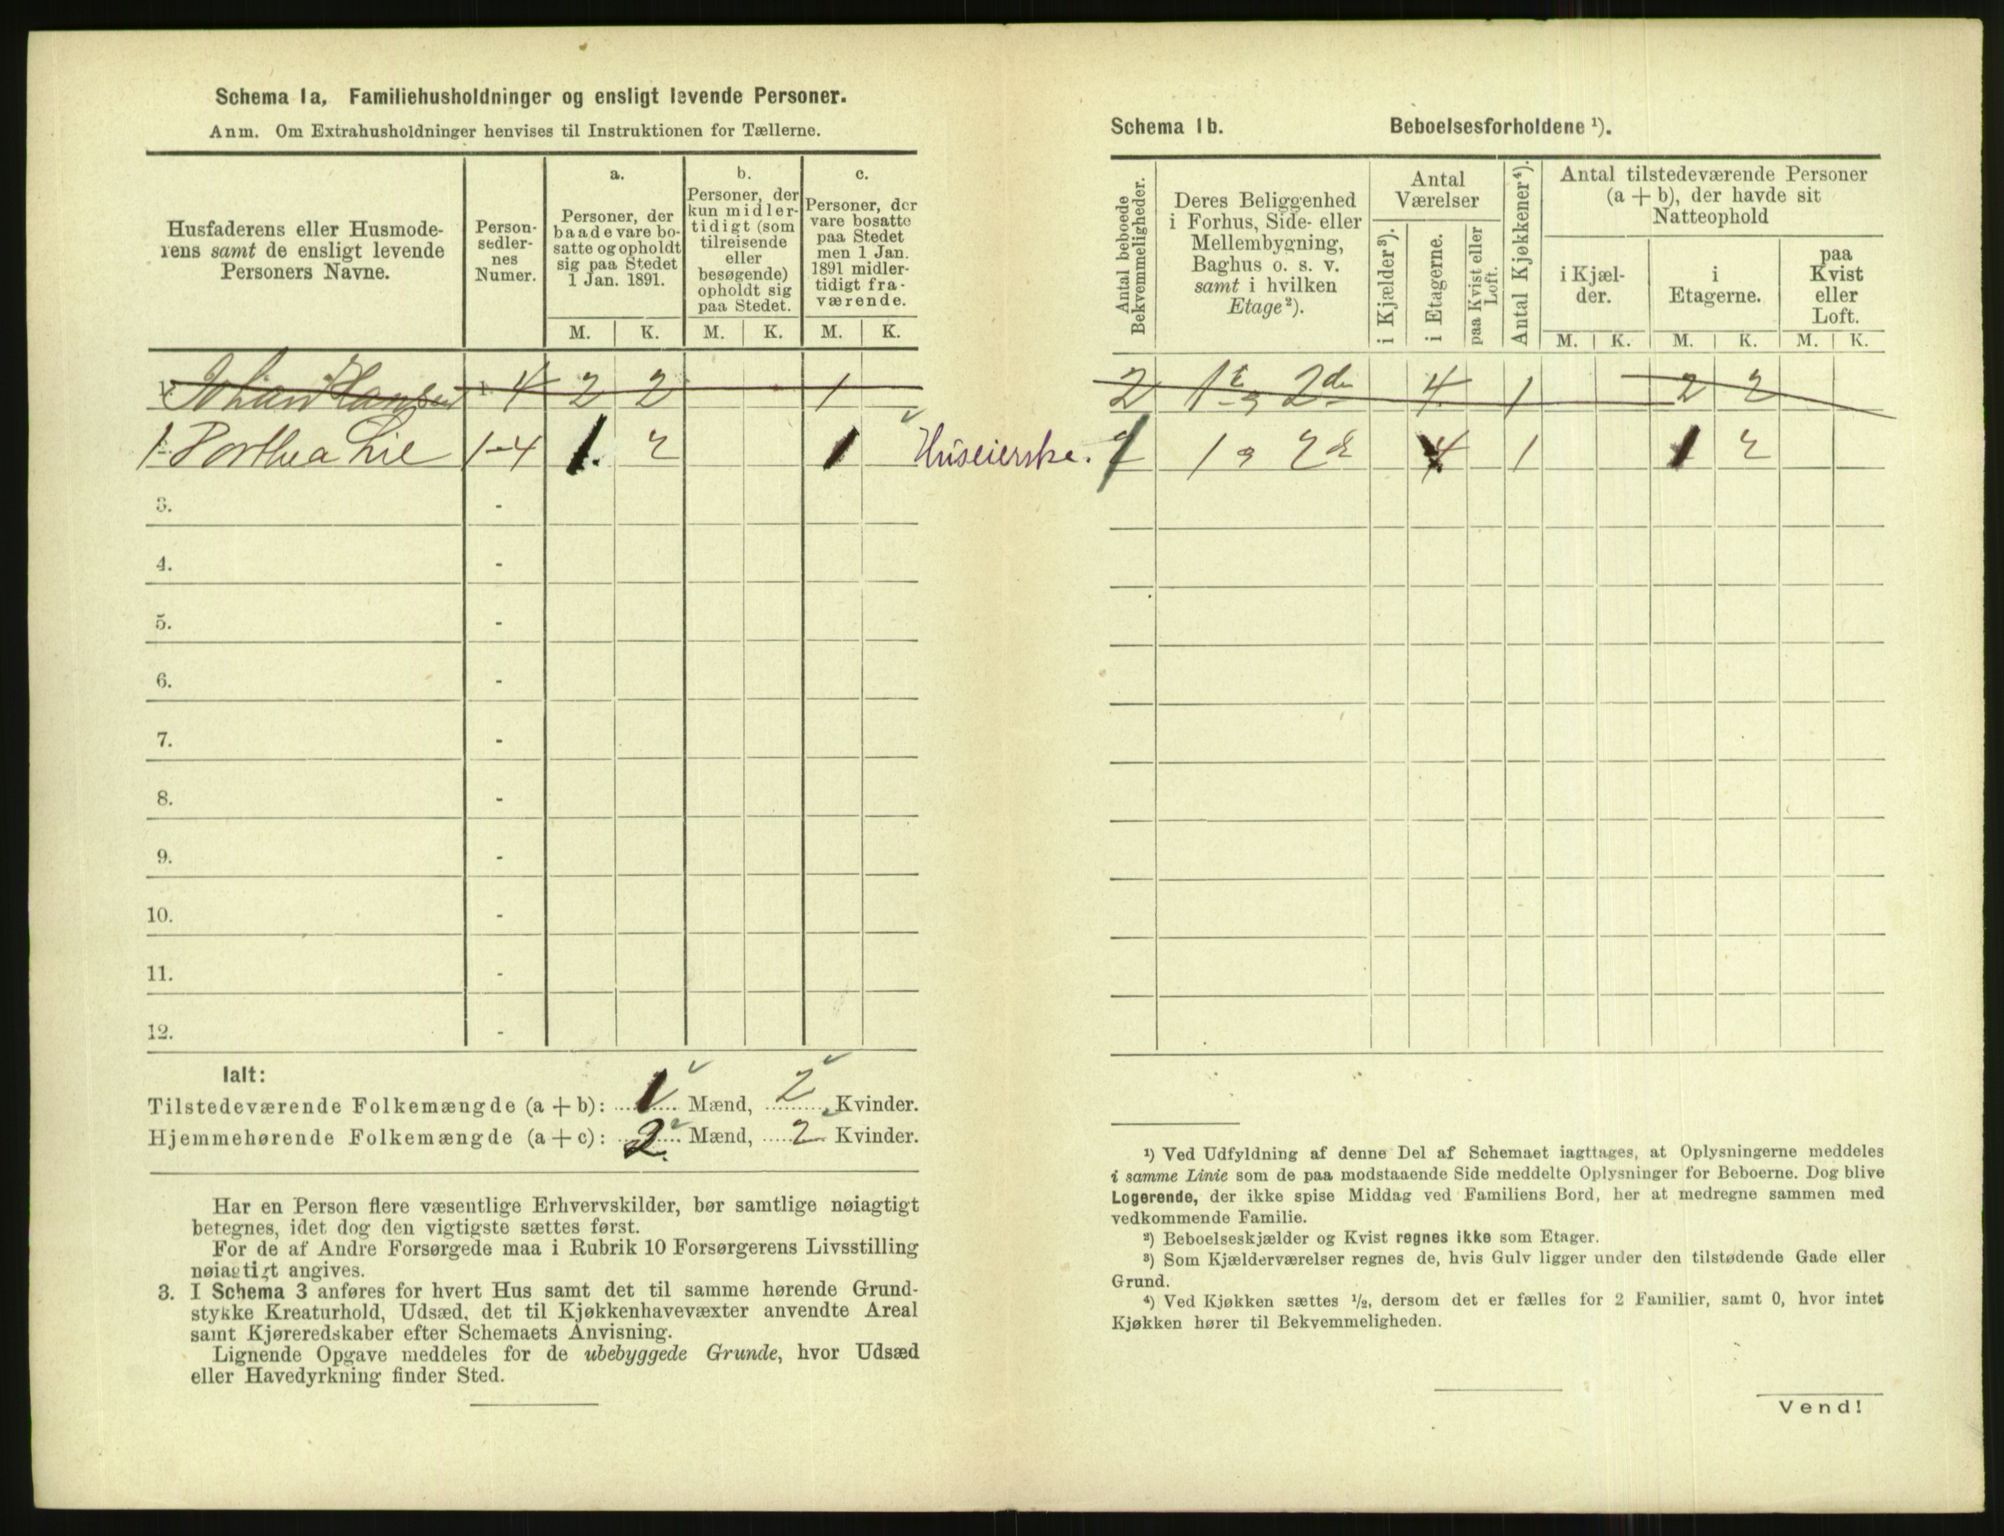 Schema 1a, Familiehusholdninger og ensligt levende Personer.
Anm. Om Extrahusholdninger henvises til Instruktionen for Tællerne.
Husfaderens eller Husmode-
rens samt de ensligt levende
Personers Navne.
Person-
sedler-
nes
Numer.
a.
Personer, der
baade vare bo-
satte og opholdt
sig paa Stedet
1 Jan. 1891.
b.
Personer, der
kun midler-
tidigt (som
tilreisende
eller
besøgende)
opholdt sig
paa Stedet.
c.
Personer, der
vare bosatte
paa Stedet
men 1 Jan.
1891 midler-
tidigt fra-
værende.
M. K. M. K. M. K.
Johan Hansen 1-4 2 2 1
1 Dorthea Lie 1-4 1. 2 1 Huseierske.
3. -
4. -
5. -
6. -
7. -
8. -
9. -
10. -
11. -
12. -
Ialt:
Tilstedeværende Folkemængde (a + b): 1 Mænd, 2 Kvinder.
Hjemmehørende Folkemængde (a + c): 2 Mænd, 2 Kvinder.
Har en Person flere væsentlige Erhvervskilder, bør samtlige nøiagtigt
betegnes, idet dog den vigtigste sættes først.
For de af Andre Forsørgede maa i Rubrik 10 Forsørgerens Livsstilling
nøiagtigt angives.
3. I Schema 3 anføres for hvert Hus samt det til samme hørende Grund-
stykke Kreaturhold, Udsæd, det til Kjøkkenhavevæxter anvendte Areal
samt Kjøreredskaber efter Schemaets Anvisning.
Lignende Opgave meddeles for de ubebyggede Grunde, hvor Udsæd
eller Havedyrkning finder Sted.
Schema 1b. Beboelsesforholdene ¹).
Antal beboede
Bekvemmeligheder.
Deres Beliggenhed
i Forhus, Side- eller
Mellembygning,
Baghus o. s. v.
samt i hvilken
Etage²).
Antal
Værelser
i Kjælder³).
i Etagerne.
paa Kvist eller
Loft.
Antal Kjøkkener⁴).
Antal tilstedeværende Personer
(a + b), der havde sit
Natteophold
i Kjæl-
der.
i
Etagerne.
paa
Kvist
eller
Loft.
M. K. M. K. M. K.
2 1te og 2den 4 1 2 2
1 1 og 2d 4 1 1 2
¹) Ved Udfyldning af denne Del af Schemaet iagttages, at Oplysningerne meddeles
i samme Linie som de paa modstaaende Side meddelte Oplysninger for Beboerne. Dog blive
Logerende, der ikke spise Middag ved Familiens Bord, her at medregne sammen med
vedkommende Familie.
²) Beboelseskjælder og Kvist regnes ikke som Etager.
³) Som Kjælderværelser regnes de, hvis Gulv ligger under den tilstødende Gade eller
Grund.
⁴) Ved Kjøkken sættes ¹/₂, dersom det er fælles for 2 Familier, samt 0, hvor intet
Kjøkken hører til Bekvemmeligheden.
Vend!